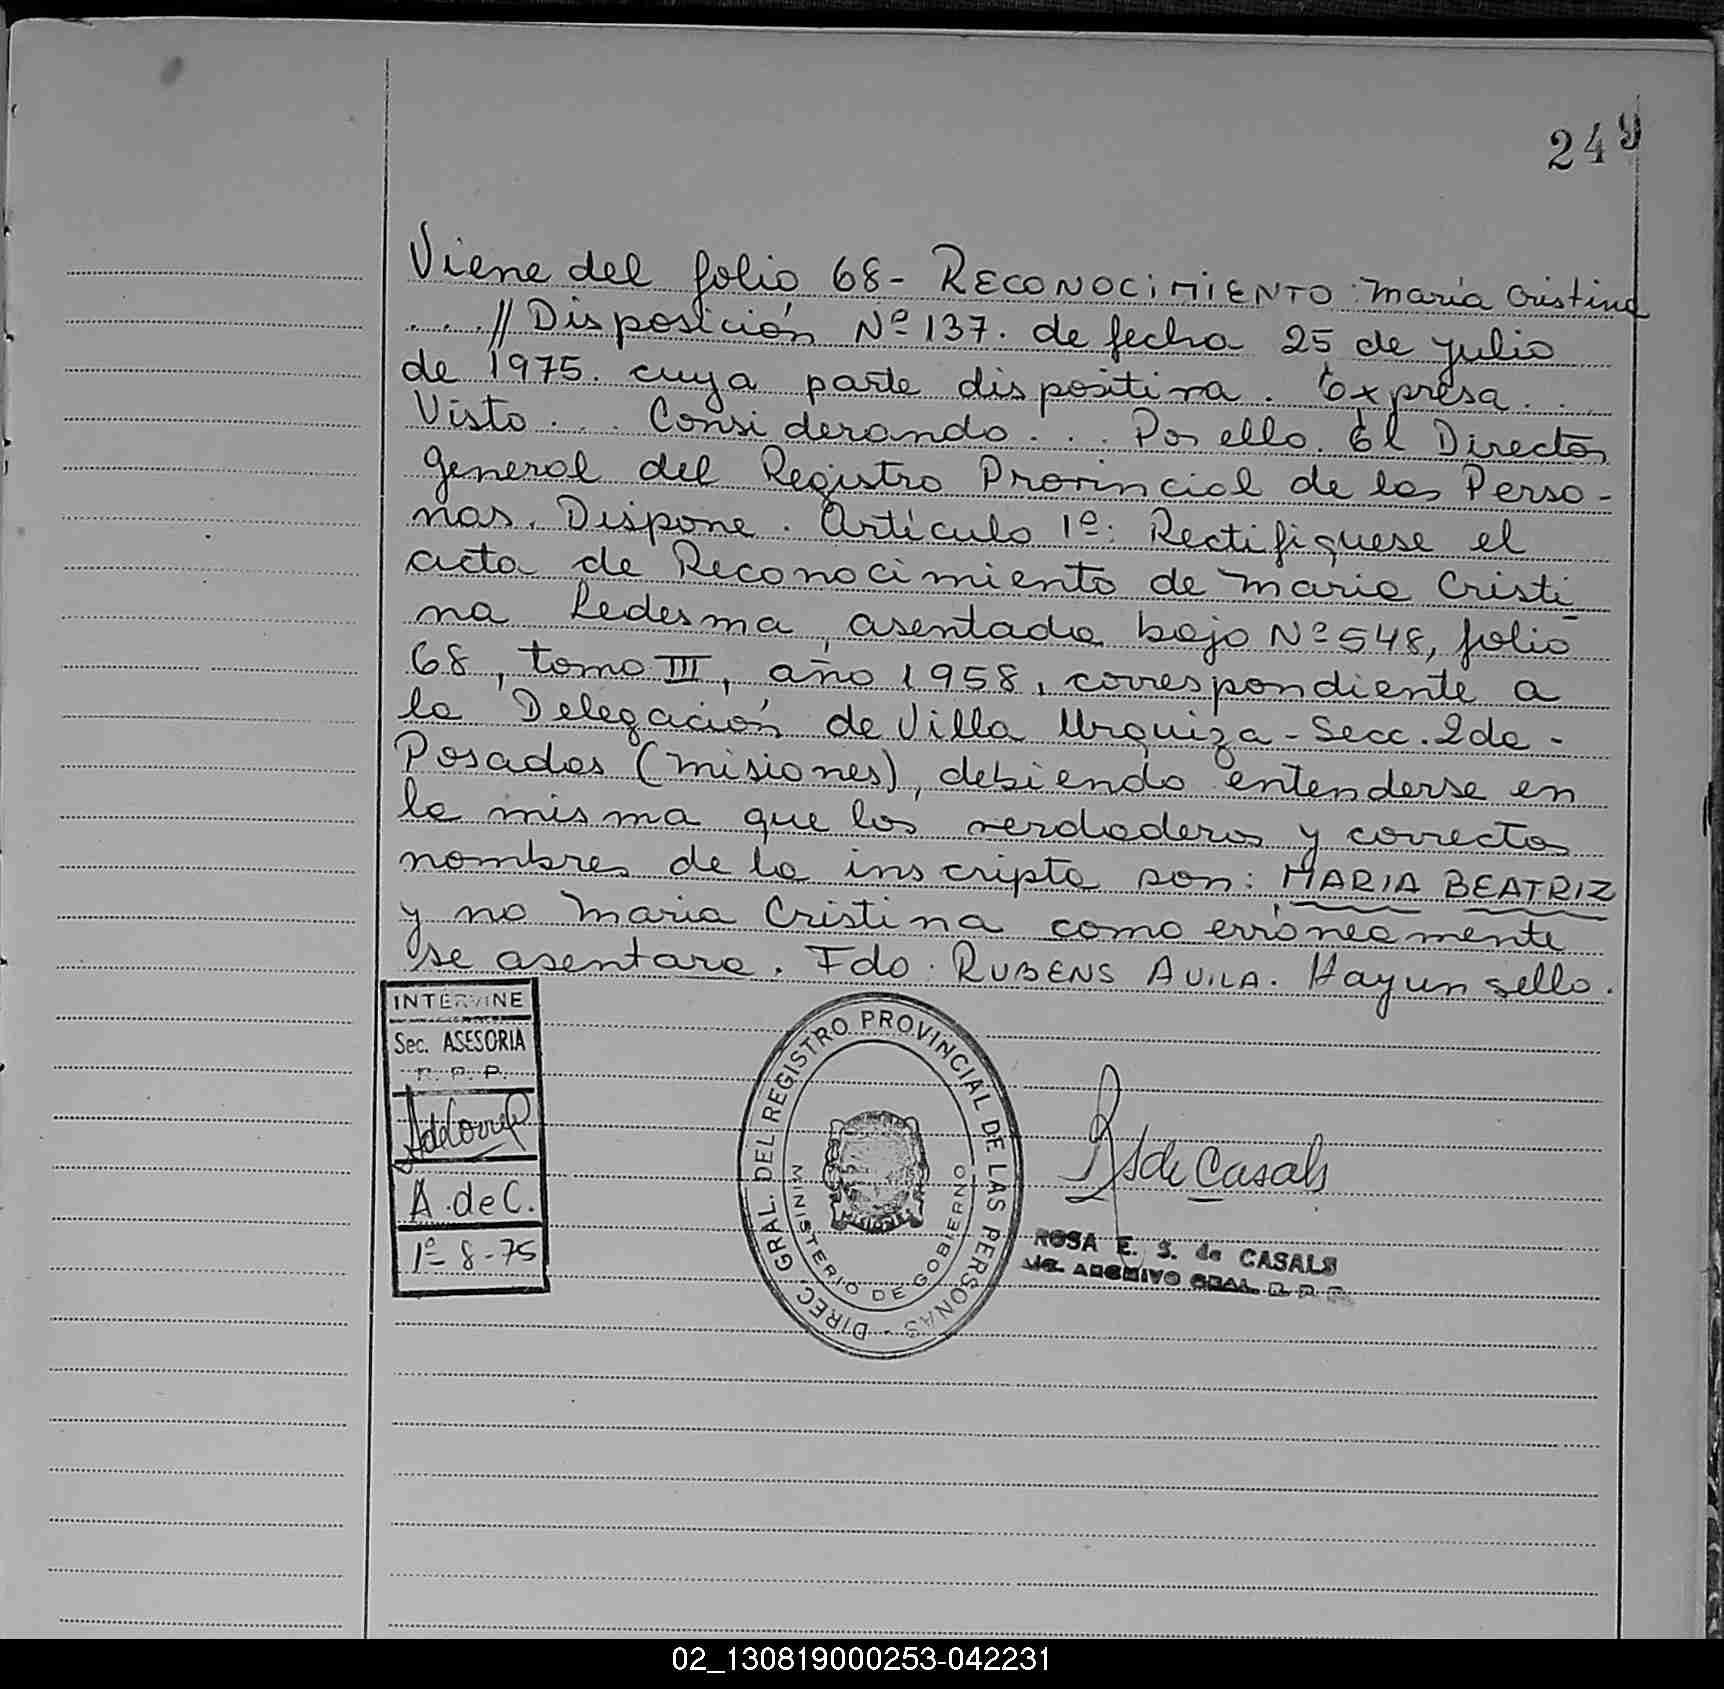 249
Viene del folio 68 - RECONOCIMIENTO: María Cristina
. . . // Disposición Nº 137. de fecha 25 de julio
de 1975. cuya parte dispositiva. Expresa. . .
Visto . . . Considerando . . . Por ello. El Director
General del Registro Provincial de las Perso-
nas. Dispone. Artículo 1º: Rectifiquese el
acta de Reconocimiento de Maria Cristi
na Ledesma, asentada bajo Nº 548, folio
68, tomo III, año 1958, correspondiente a
la Delegación de Villa Urquiza - Secc. 2da -
Posadas (Misiones), debiendo entenderse en
la misma que los verdaderos y correctos
nombres de la inscripta son: MARIA BEATRIZ
y no Maria Cristina como erróneamente
se asentara. Fdo. RUBENS AVILA. Hay un sello.
INTERVINE
Sec. ASESORIA
R. P. P.
A. de C.
1º - 8 - 75
DIREC. GRAL. DEL REGISTRO PROVINCIAL DE LAS PERSONAS -
MINISTERIO DE GOBIERNO
MISIONES
de Casals
ROSA E. S. de CASALS
ARCHIVO GRAL. R. P. P.
02_130819000253-042231